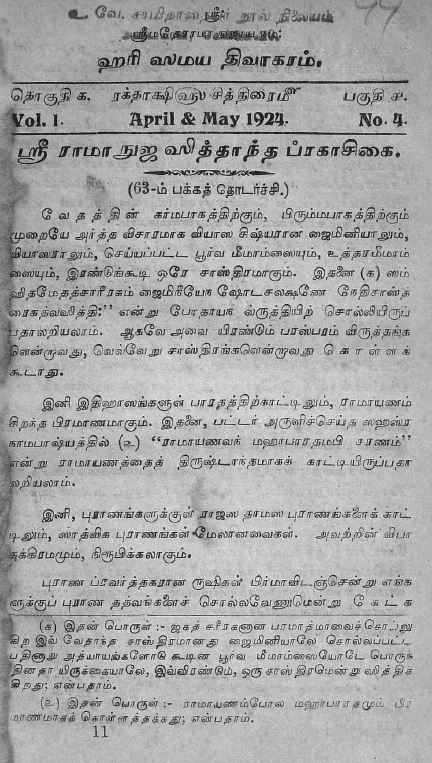 உ வே. சாமிநாதையர் நூல் நிலையம்
ஸ்ரீ:
ஸ்ரீமதே ராமாநுஜாய நம:
ஹரி ஸமய திவாகரம்.
தொகுதி க. ரக்தாக்ஷிவ௵ சித்திரை௴ பகுதி ச.
Vol. 1. April & May 1924. No. 4.
ஸ்ரீ ராமாநுஜ ஸித்தாந்த ப்ரகாசிகை.
(63-ம் பக்கத் தொடர்ச்சி.)
வேதத்தின் கர்மபாகத்திற்கும், பிரும்மபாகத்திற்கும்
முறையே அர்த்த விசாரமாக வியாஸ சிஷ்யரான ஜைமினியாலும்,
வியாஸராலும், செய்யப்பட்ட பூர்வ மீமாம்ஸையும், உத்தரமீமாம்
ஸையும், இரண்டுங்கூடி ஒரே சாஸ்திரமாகும். இதனை (க) ஸம்
ஹிதமேதச்சாரீரகம் ஜைமிநீயேந ஷோடசலக்ஷணே நேதிசாஸ்த்
ரைகத்வஸித்தி:” என்று போதாயந வ்ருத்தியிற் சொல்லியிருப்
பதாலறியலாம். ஆகவே அவை யிரண்டும் பரஸ்பரம் விருத்தங்க
ளென்றாவது, வெவ்வேறு சாஸ்திரங்களென்றாவது கொள்ளக்
கூடாது.
இனி இதிஹாஸங்களுள் பாரதத்திற்காட்டிலும், ராமாயணம்
சிறந்த பிரமாணமாகும். இதனை, பட்டர் அருளிச்செய்த ஸஹஸ்ர
நாமபாஷ்யத்தில் (உ) “ராமாயணவந் மஹாபாரதமபி சரணம்”
என்று ராமாயணத்தைத் திருஷ்டாந்தமாகக் காட்டியிருப்பதா
லறியலாம்.
இனி, புராணங்களுக்குள் ராஜஸ தாமஸ புராணங்களைக் காட்
டிலும், ஸாத்விக புராணங்கள் மேலானவைகள். அவற்றின் விபா
கக்கிரமமும், நிரூபிக்கலாகும்.
புராண ப்ரவர்த்தகரான ருஷிகள் பிர்மாவிடஞ்சென்று எங்க
ளுக்குப் புராண தத்வங்களைச் சொல்லவேணுமென்று கேட்க
(க) இதன் பொருள் :- ஜகத் சரீரகனான பரமாத்மாவைச்சொற்று
கிற இவ்வேதாந்த சாஸ்திரமானது ஜைமினியாலே சொல்லப்பட்ட
பதினாறு அத்யாயங்களோடு கூடின பூர்வ மீமாம்ஸையோடே பொருந்
தினதா யிருக்கையாலே, இவ்விரண்டும், ஒரு சாஸ்திரமென்று ஸித்திக்
கிறது; என்பதாம்.
(உ) இதன் பொருள் :- ராமாயணம்போல மஹாபாரதமும் பிர
மாணமாகக் கொள்ளத்தக்கது; என்பதாம்.
11